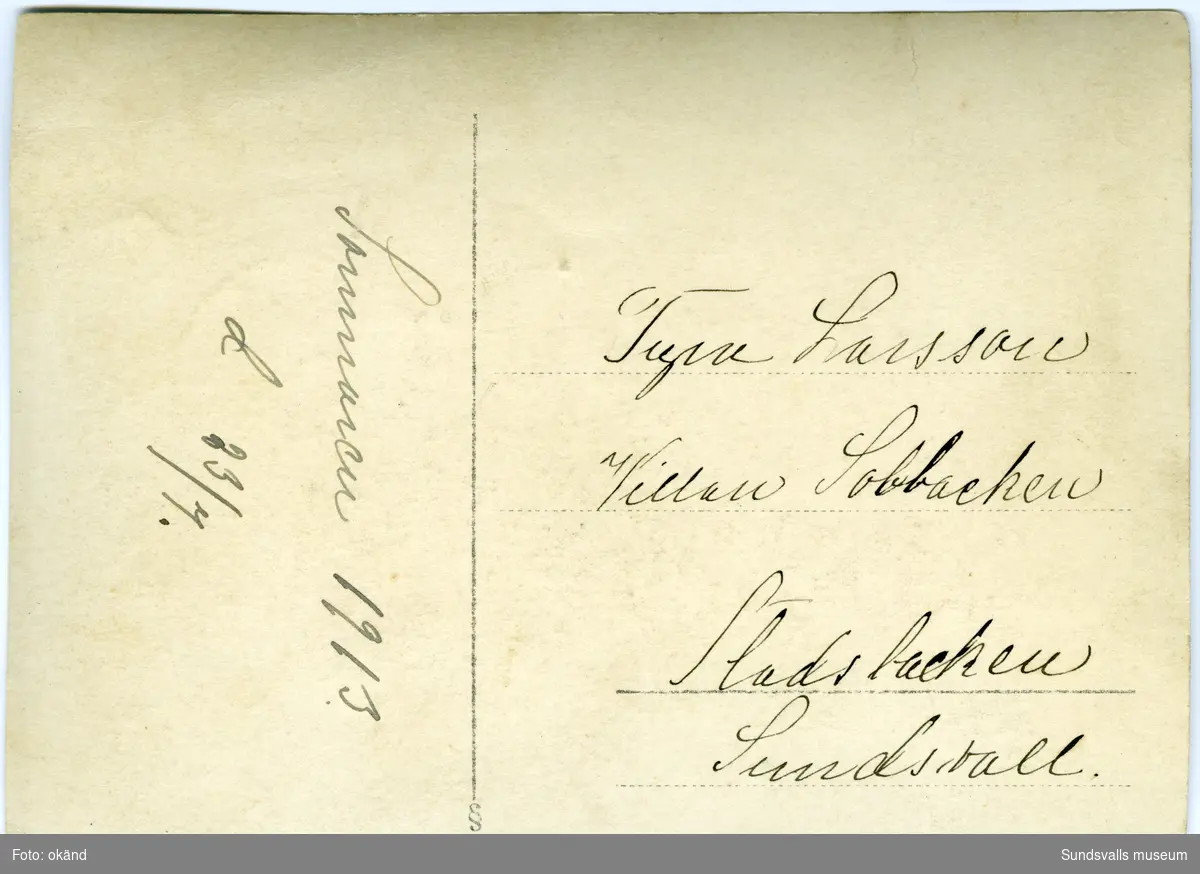 Sommaren 1913
d
23/7.
Tyra Larsson
Villan Solbacken
Stadsbacken
Sundsvall.
Foto: okänd
Sundsvalls museum